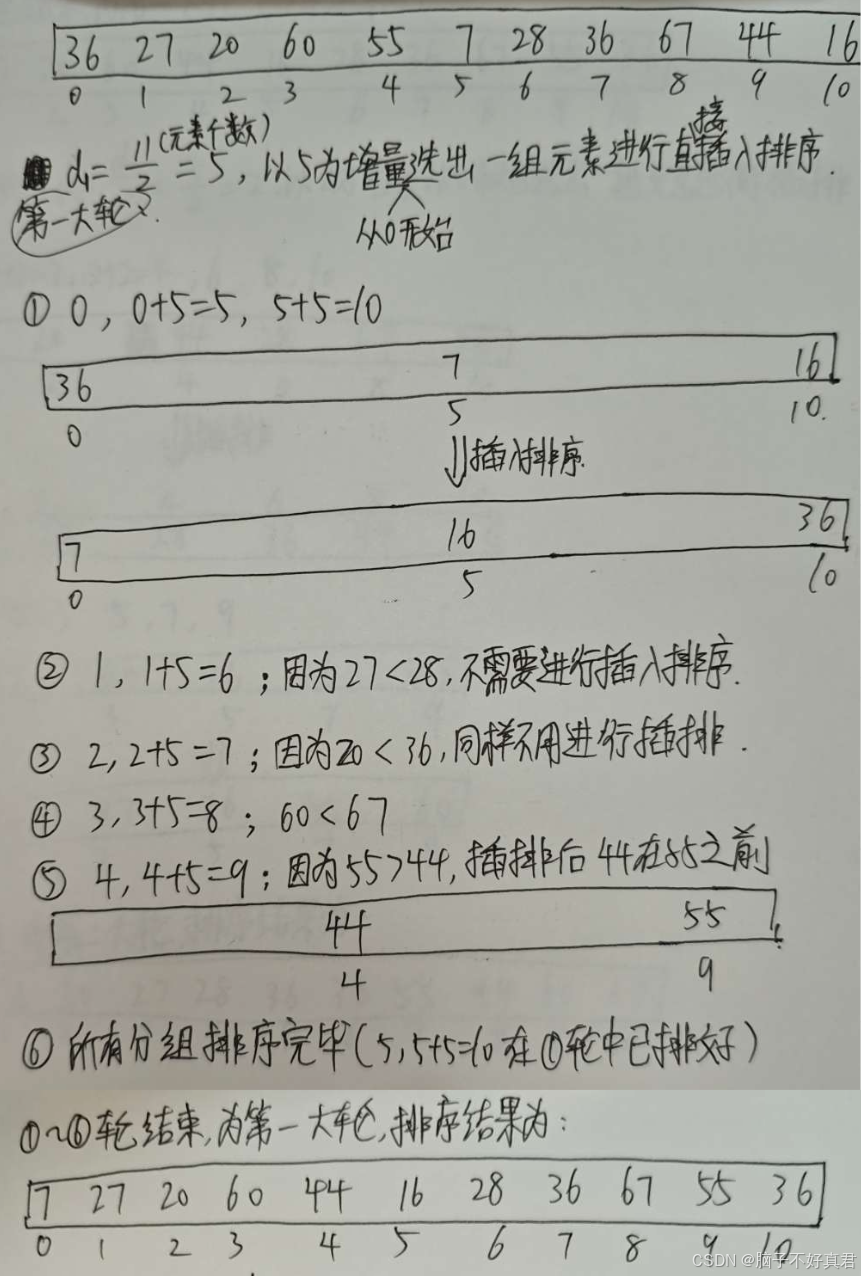 36 27 20 60 55 7 28 36 67 44 16
0 1 2 3 4 5 6 7 8 9 10
d₁= 11(元素个数)/2 = 5, 以5为增量选出一组元素进行直接插入排序.
第一大轮
从0开始
① 0, 0+5=5, 5+5=10
36 7 16
0 5 10.
插入排序
7 16 36
0 5 10
② 1, 1+5=6 ; 因为27<28, 不需要进行插入排序.
③ 2, 2+5=7 ; 因为20<36, 同样不用进行插排.
④ 3, 3+5=8 ; 60<67
⑤ 4, 4+5=9 ; 因为55>44, 插排后44在55之前
44 55
4 9
⑥ 所有分组排序完毕(5,5+5=10在①轮中已排好)
①~⑥轮结束,为第一大轮,排序结果为:
7 27 20 60 44 16 28 36 67 55 36
0 1 2 3 4 5 6 7 8 9 10
CSDN @脑子不好真君